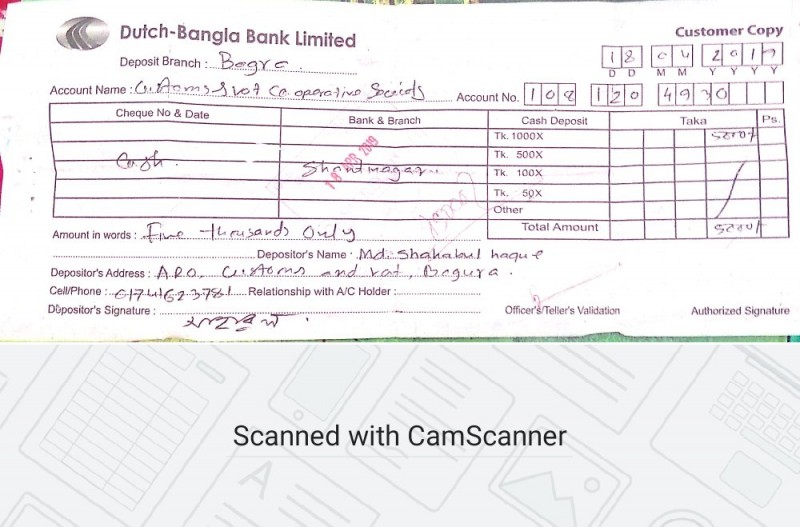 Dutch-Bangla Bank Limited
Customer Copy
Deposit Branch : Bogra
18 04 2019
D D M M Y Y Y Y
Account Name : Customs & vat Co operative
Account No. 108 120 4930
Cheque No & Date Bank & Branch Cash Deposit Taka Ps.
Tk. 1000X
Tk. 500X
Cash. Shantinagar. Tk. 100X
18 APR 2019
Tk. 50X
Other
Total Amount
Amount in words : Five thousands Only
Depositor's Name : Md. Shahabul haque
Depositor's Address : A.R.O, Customs and vat, Bogura.
Cell/Phone : Relationship with A/C Holder :
Depositor's Signature :
Officer's/Teller's Validation Authorized Signature
Scanned with CamScanner